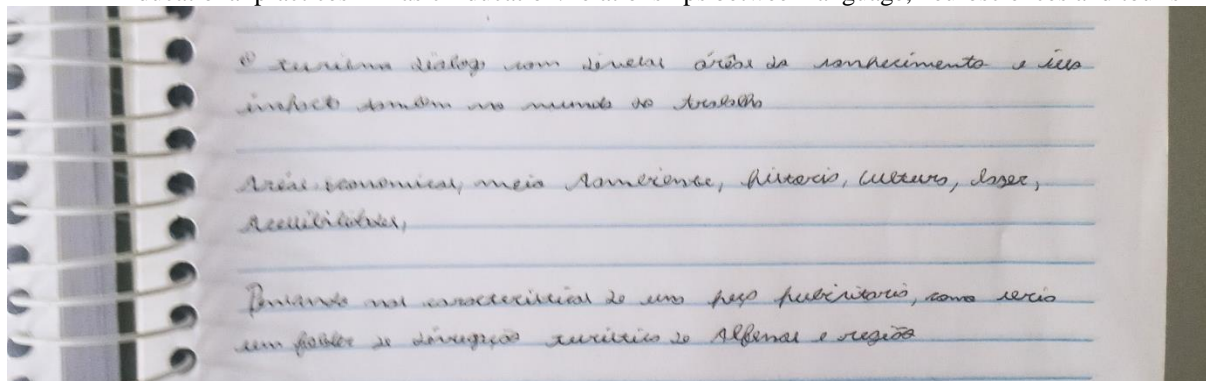 O turismo dialoga com diversas áreas do conhecimento e isso
impacta também no mundo do trabalho
Áreas econômicas, meio Ambiente, história, cultura, lazer,
Acessibilidades,
Pensando nas características de uma peça publicitária, como seria
um folder de divulgação turístico de Alfenas e região